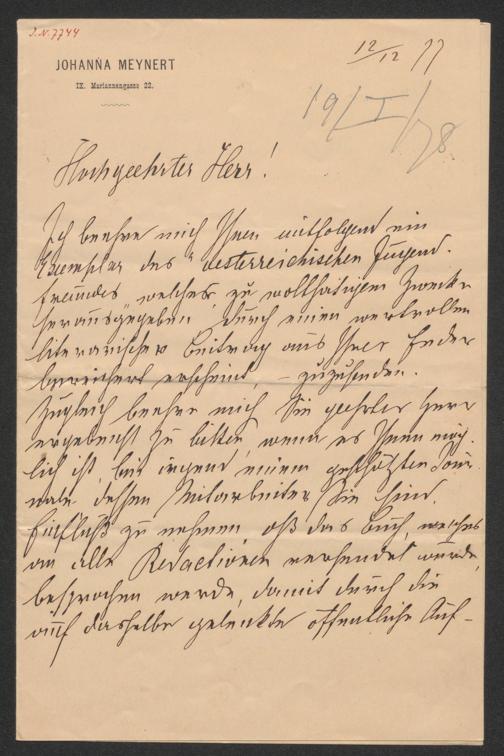 J.N. 7744
JOHANNA MEYNERT
IX. Mariannengasse 22.
12/12 77
19/I/78.
Hochgeehrter Herr!
Ich beehre mich Ihnen mitfolgend ein
Exemplar des "oesterreichischen Jugend-
freundes" welcher zu wollthätigem Zwecke
herausgegeben durch einen wertvollen
literarischen Beitrag aus Ihrer Feder
bereichert erscheint, – zuzusenden.
Zugleich beehre mich Sie geehrter Herr
ergebenst zu bitten, wenn es Ihnen mög-
lich ist, bei irgend einem geschätzten Jour-
nale, dessen Mitarbeiter Sie sind,
Einfluß zu nehmen, daß das Buch, welches
an alle Redactionen versendet wurde,
besprochen werde, damit durch die
auf dasselbe gelenkte öffentliche Auf-